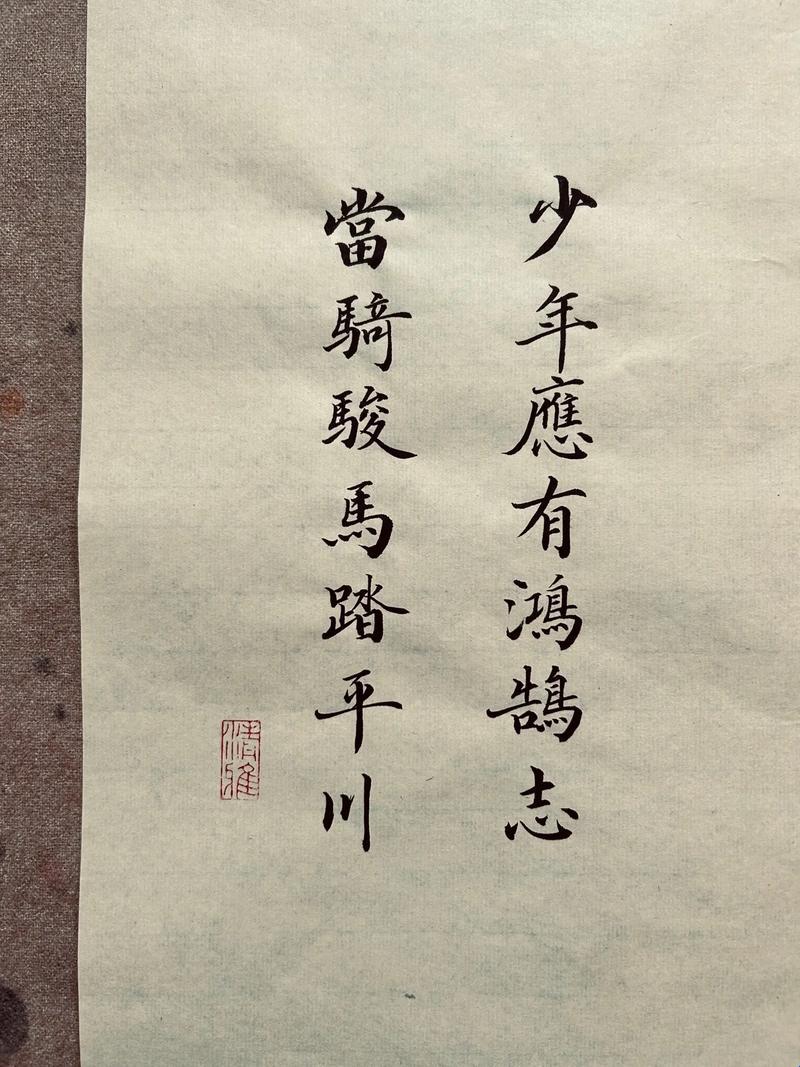 少年應有鴻鵠志
當騎駿馬踏平川